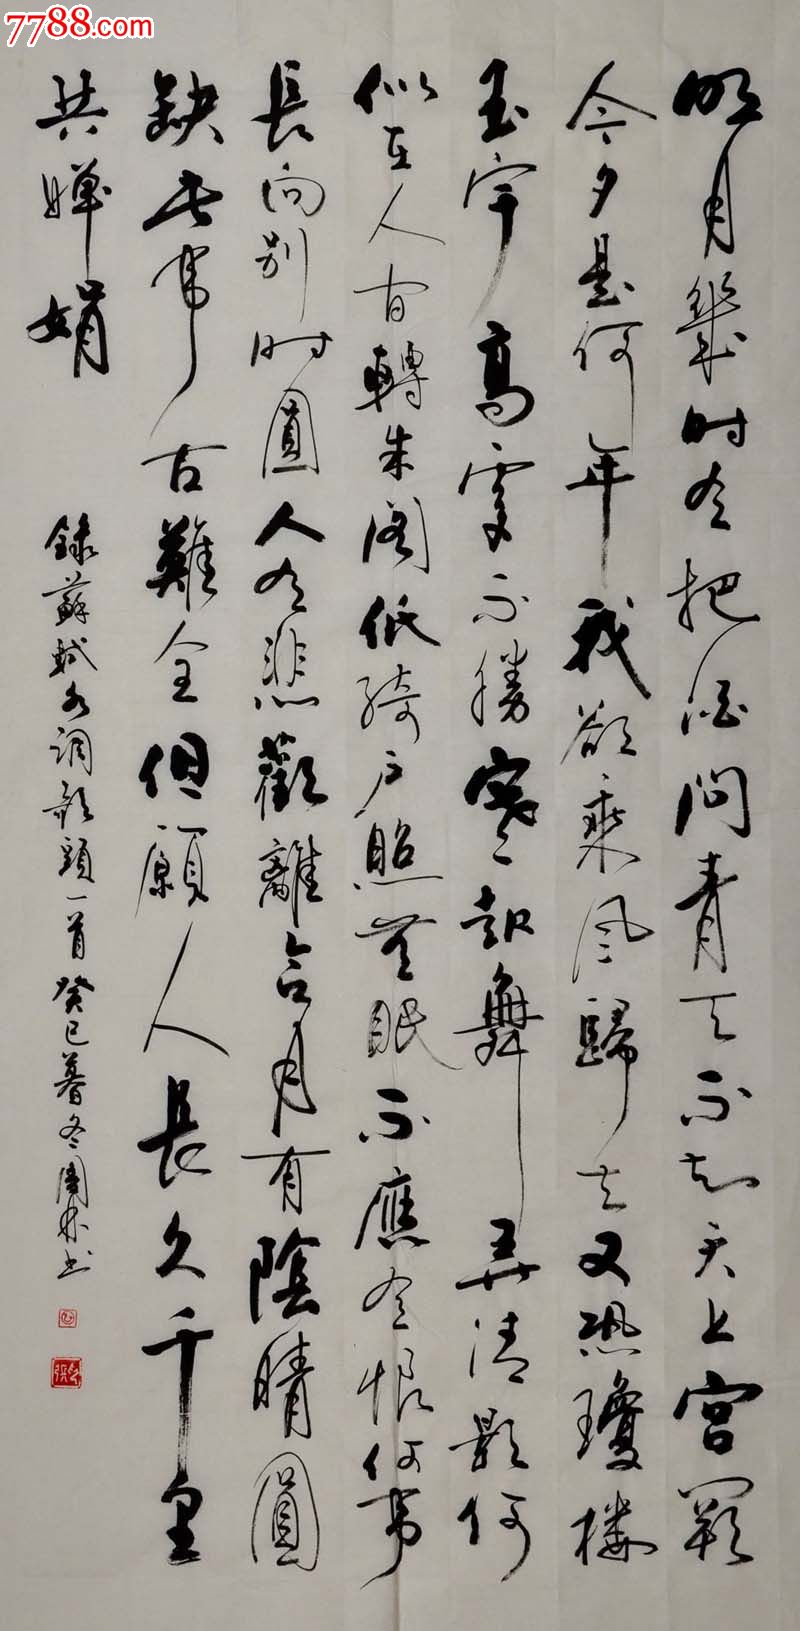 7788.com
明月幾时有把酒问青天不知天上宫闕
今夕是何年我欲乘风歸去又恐瓊楼
玉宇高處不勝寒起舞弄清影何
似在人间轉朱阁低綺户照無眠不應有恨何事
長向别时圓人有悲歡離合月有陰晴圓
缺此事古難全但願人長久千里
共嬋娟
録蘇軾水调歌頭一首癸巳暮冬书